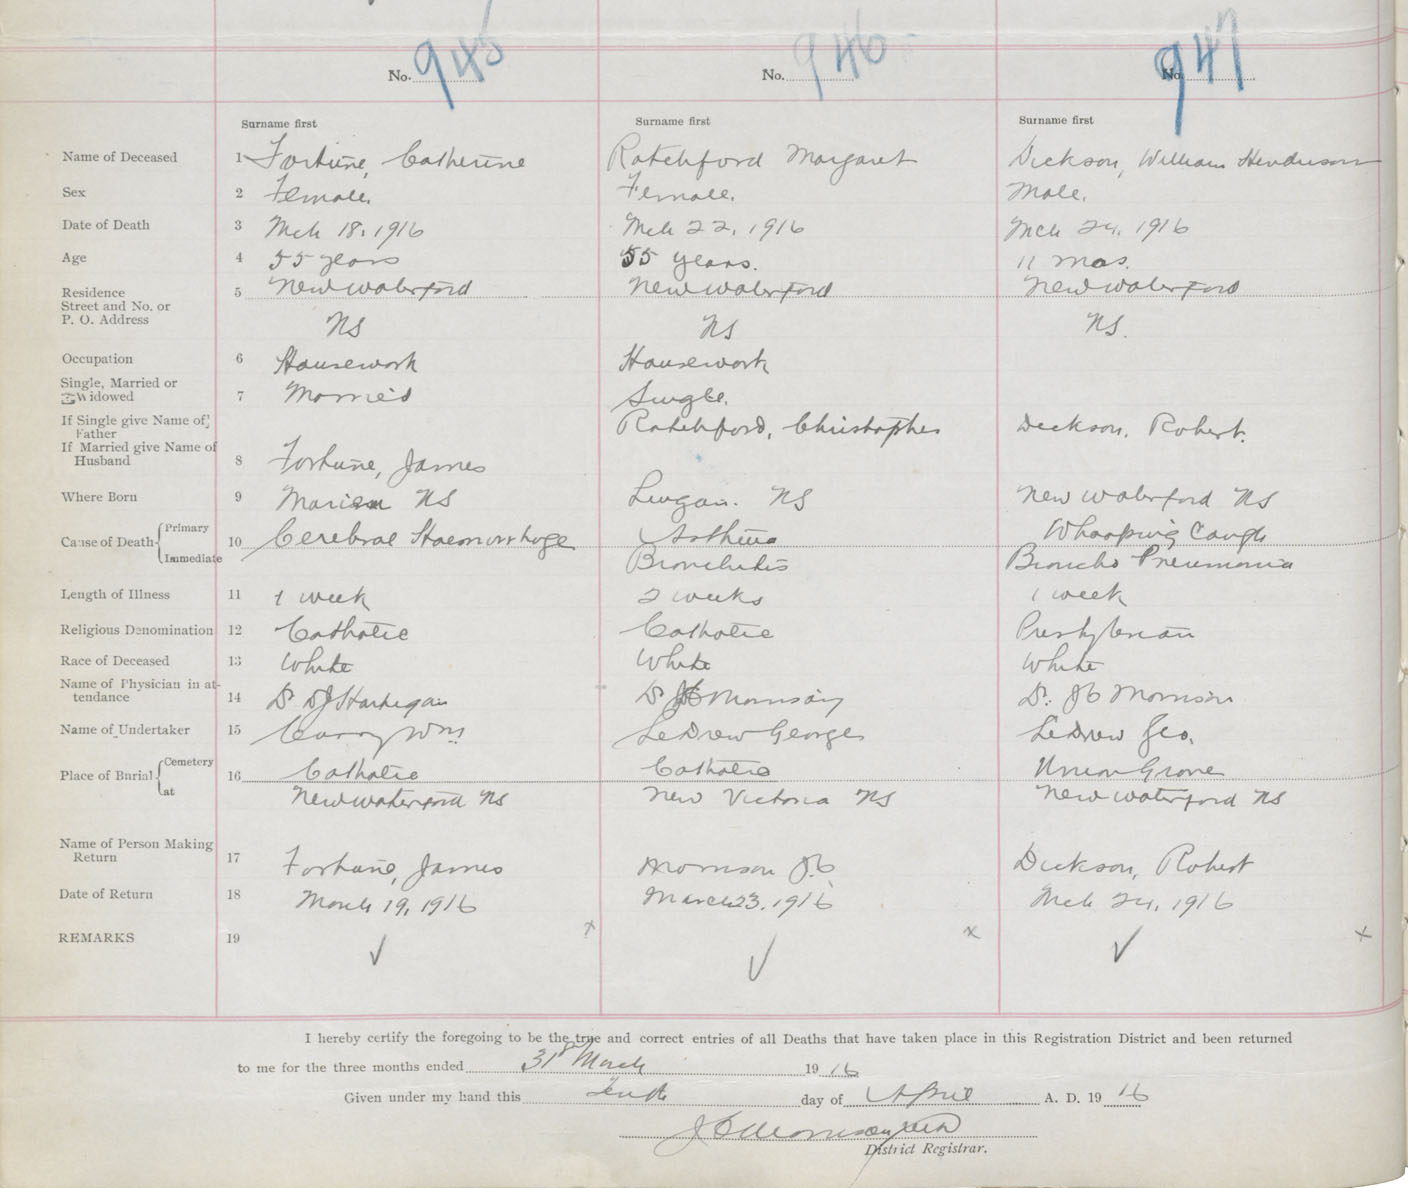 No. 945 No. 946 No. 947
Surname first Surname first Surname first
Name of Deceased 1 Fortune, Catherine Ratchford Margaret Dickson, William Henderson
Sex 2 Female. Female. Male.
Date of Death 3 Mch 18, 1916 Mch 22, 1916 Mch 24, 1916
Age 4 55 years 55 years. 11 mos.
Residence 5 New Waterford New Waterford New Waterford
Street and No. or
P. O. Address NS NS NS.
Occupation 6 Housework Housework
Single, Married or
Widowed 7 Married Single.
If Single give Name of Ratchford, Christopher Dickson, Robert.
Father
If Married give Name of
Husband 8 Fortune, James
Where Born 9 NS Lingan. NS New Waterford NS
Cause of Death Primary 10 Cerebral Haemorrhage Asthma Whooping Cough
Immediate Bronchitis Broncho Pneumonia
Length of Illness 11 1 week 2 weeks 1 week
Religious Denomination 12 Catholic Catholic Presbyterian
Race of Deceased 13 White White White
Name of Physician in at-
tendance 14 Dr DJ Hartigan Dr JC Morrison Dr. JC Morrison
Name of Undertaker 15 Wm LeDrew George LeDrew Geo.
Place of Burial Cemetery 16 Catholic Catholic Union Grove
at New Waterford NS New Victoria NS New Waterford NS
Name of Person Making
Return 17 Fortune, James Morrison JC Dickson, Robert
Date of Return 18 March 19, 1916 March 23, 1916 Mch 24, 1916
REMARKS 19 ✓ x ✓ x ✓ x
I hereby certify the foregoing to be the true and correct entries of all Deaths that have taken place in this Registration District and been returned
to me for the three months ended 31st March 1916
Given under my hand this Tenth day of April A. D. 1916
JC Morrison MD
District Registrar.